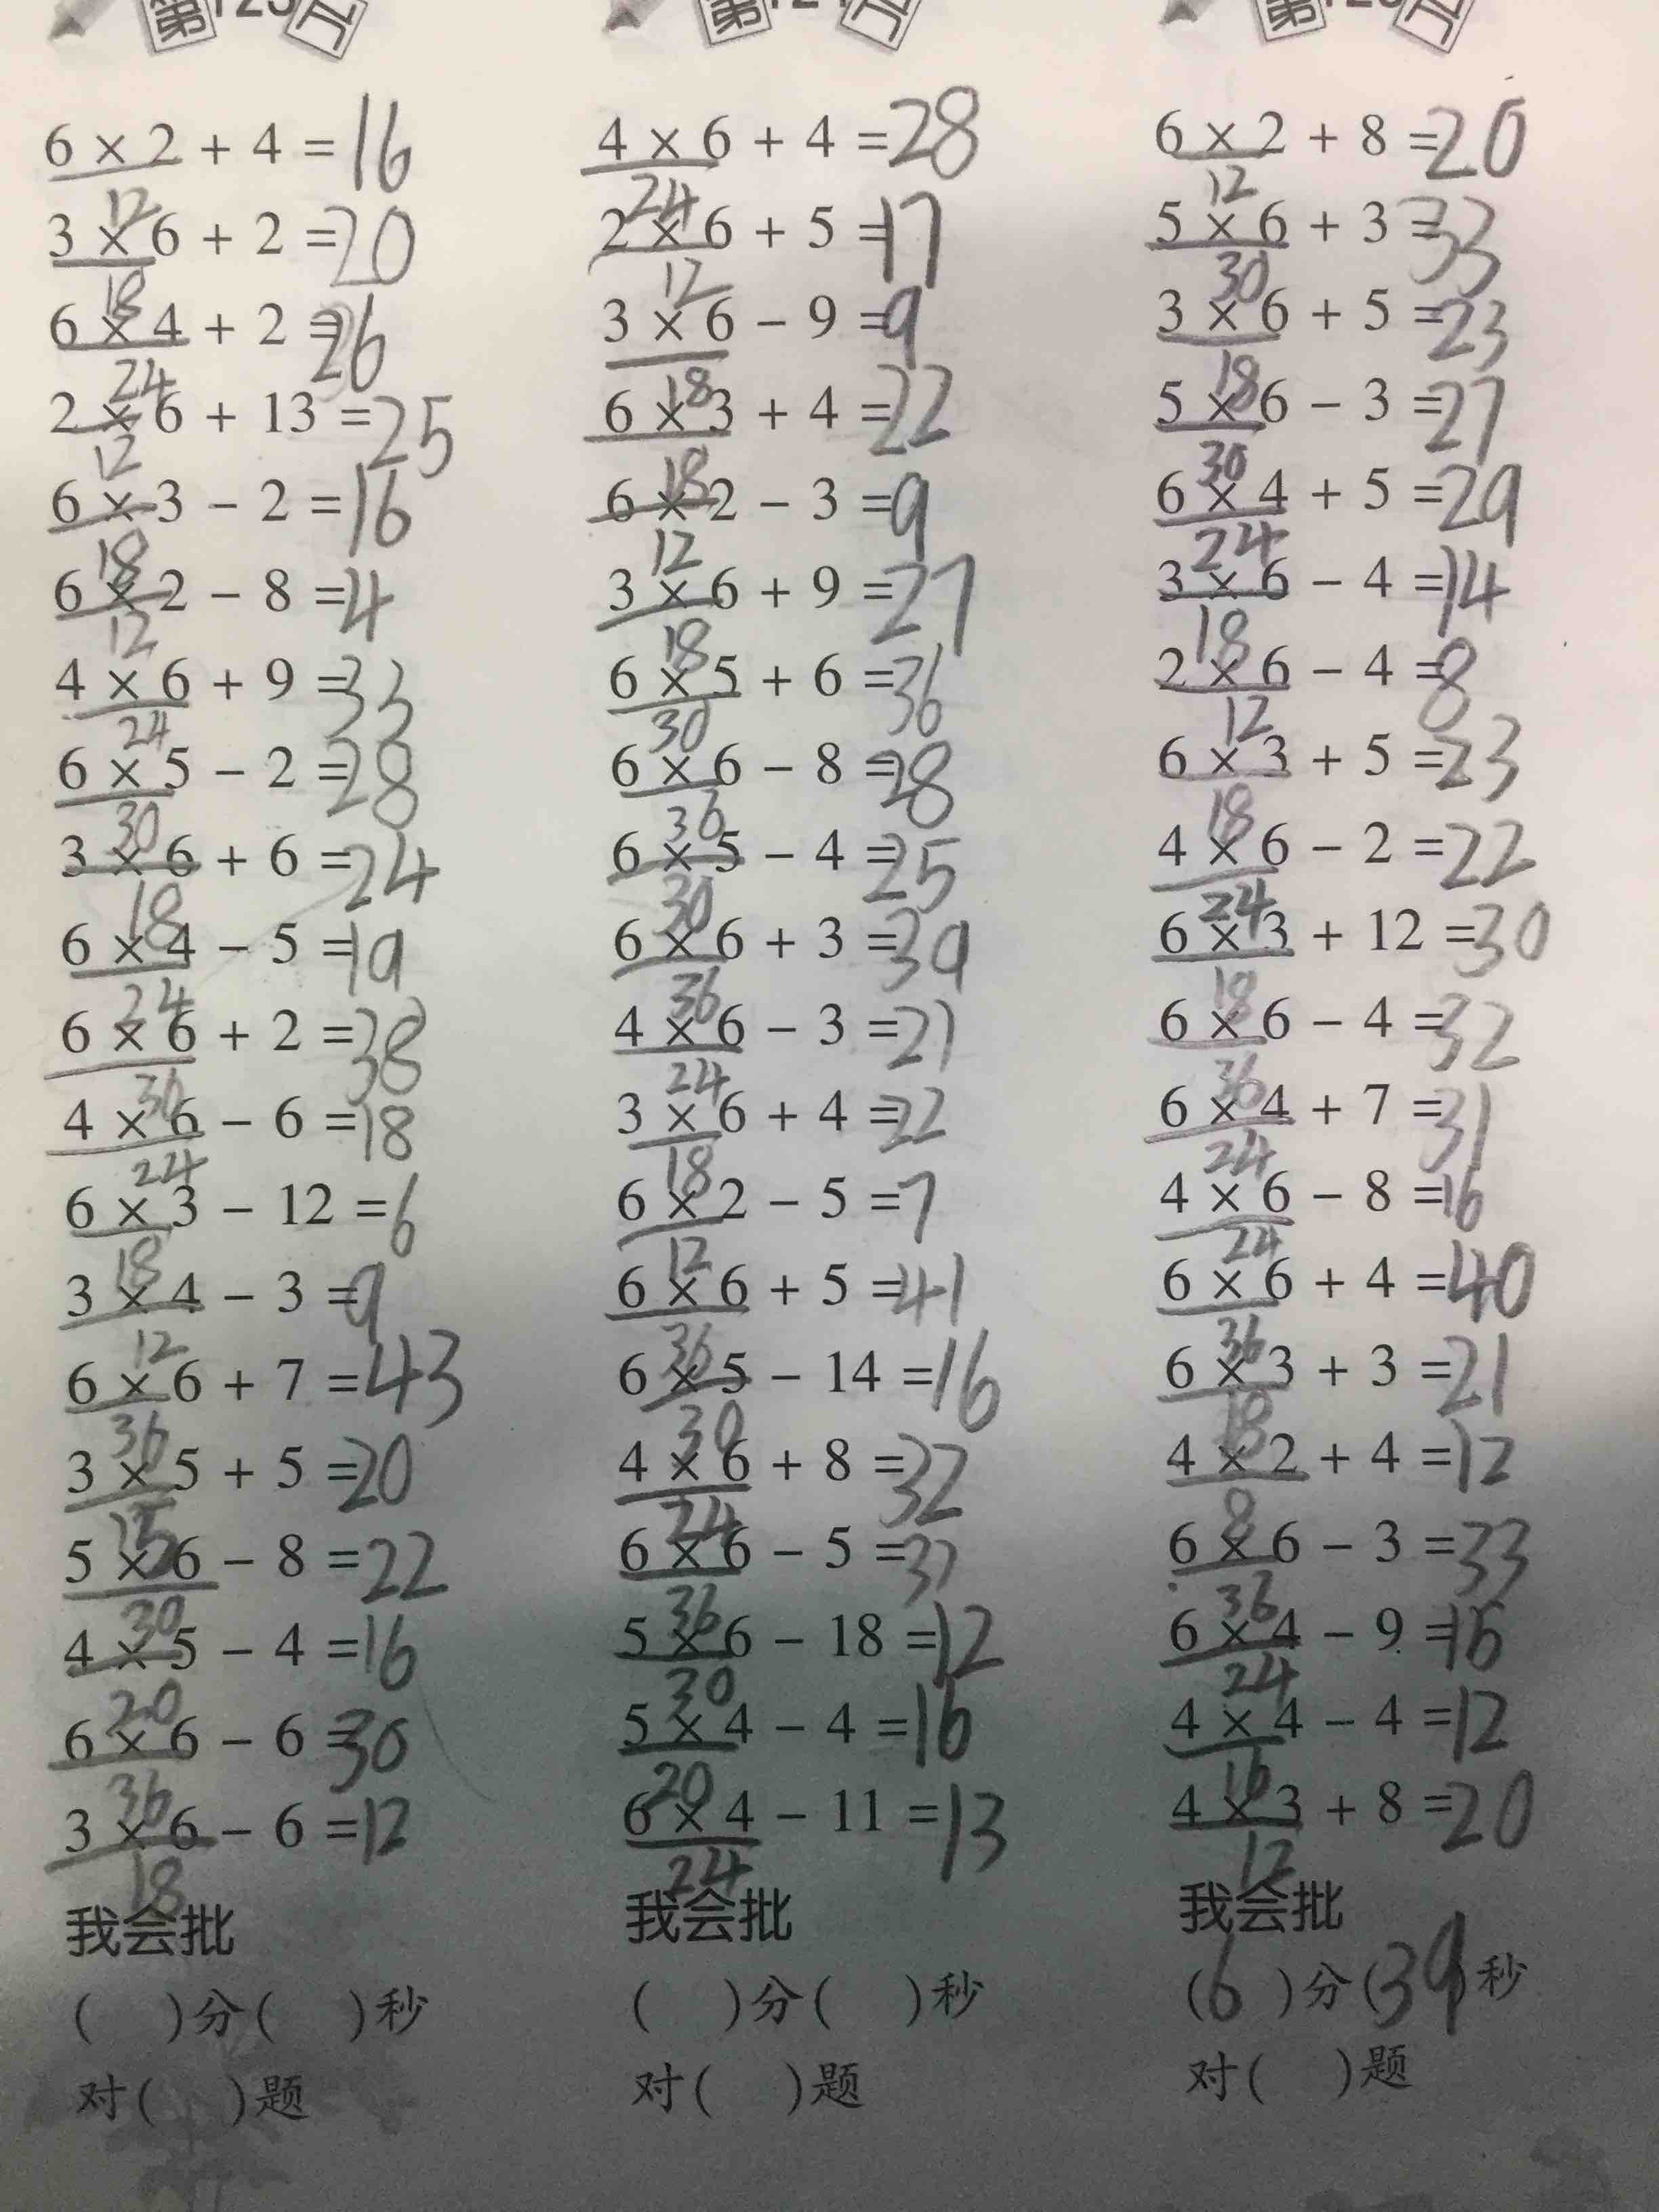 6 × 2 + 4 = 16
12
3 × 6 + 2 = 20
18
6 × 4 + 2 = 26
24
2 × 6 + 13 = 25
12
6 × 3 - 2 = 16
18
6 × 2 - 8 = 4
12
4 × 6 + 9 = 33
24
6 × 5 - 2 = 28
30
3 × 6 + 6 = 24
18
6 × 4 - 5 = 19
24
6 × 6 + 2 = 38
36
4 × 6 - 6 = 18
24
6 × 3 - 12 = 6
18
3 × 4 - 3 = 9
12
6 × 6 + 7 = 43
36
3 × 5 + 5 = 20
15
5 × 6 - 8 = 22
30
4 × 5 - 4 = 16
20
6 × 6 - 6 = 30
36
3 × 6 - 6 = 12
18
我会批
( )分( )秒
对( )题
4 × 6 + 4 = 28
24
2 × 6 + 5 = 17
12
3 × 6 - 9 = 9
18
6 × 3 + 4 = 22
18
6 × 2 - 3 = 9
12
3 × 6 + 9 = 27
18
6 × 5 + 6 = 36
30
6 × 6 - 8 = 28
36
6 × 5 - 4 = 25
30
6 × 6 + 3 = 39
36
4 × 6 - 3 = 21
24
3 × 6 + 4 = 22
18
6 × 2 - 5 = 7
12
6 × 6 + 5 = 41
36
6 × 5 - 14 = 16
30
4 × 6 + 8 = 32
24
6 × 6 - 5 = 31
36
5 × 6 - 18 = 12
30
5 × 4 - 4 = 16
20
6 × 4 - 11 = 13
24
我会批
( )分( )秒
对( )题
6 × 2 + 8 = 20
12
5 × 6 + 3 = 33
30
3 × 6 + 5 = 23
18
5 × 6 - 3 = 27
30
6 × 4 + 5 = 29
24
3 × 6 - 4 = 14
18
2 × 6 - 4 = 8
12
6 × 3 + 5 = 23
18
4 × 6 - 2 = 22
24
6 × 3 + 12 = 30
18
6 × 6 - 4 = 32
36
6 × 4 + 7 = 31
24
4 × 6 - 8 = 16
24
6 × 6 + 4 = 40
36
6 × 3 + 3 = 21
18
4 × 2 + 4 = 12
8
6 × 6 - 3 = 33
36
6 × 4 - 9 = 16
24
4 × 4 - 4 = 12
16
4 × 3 + 8 = 20
12
我会批
(6)分(39)秒
对( )题